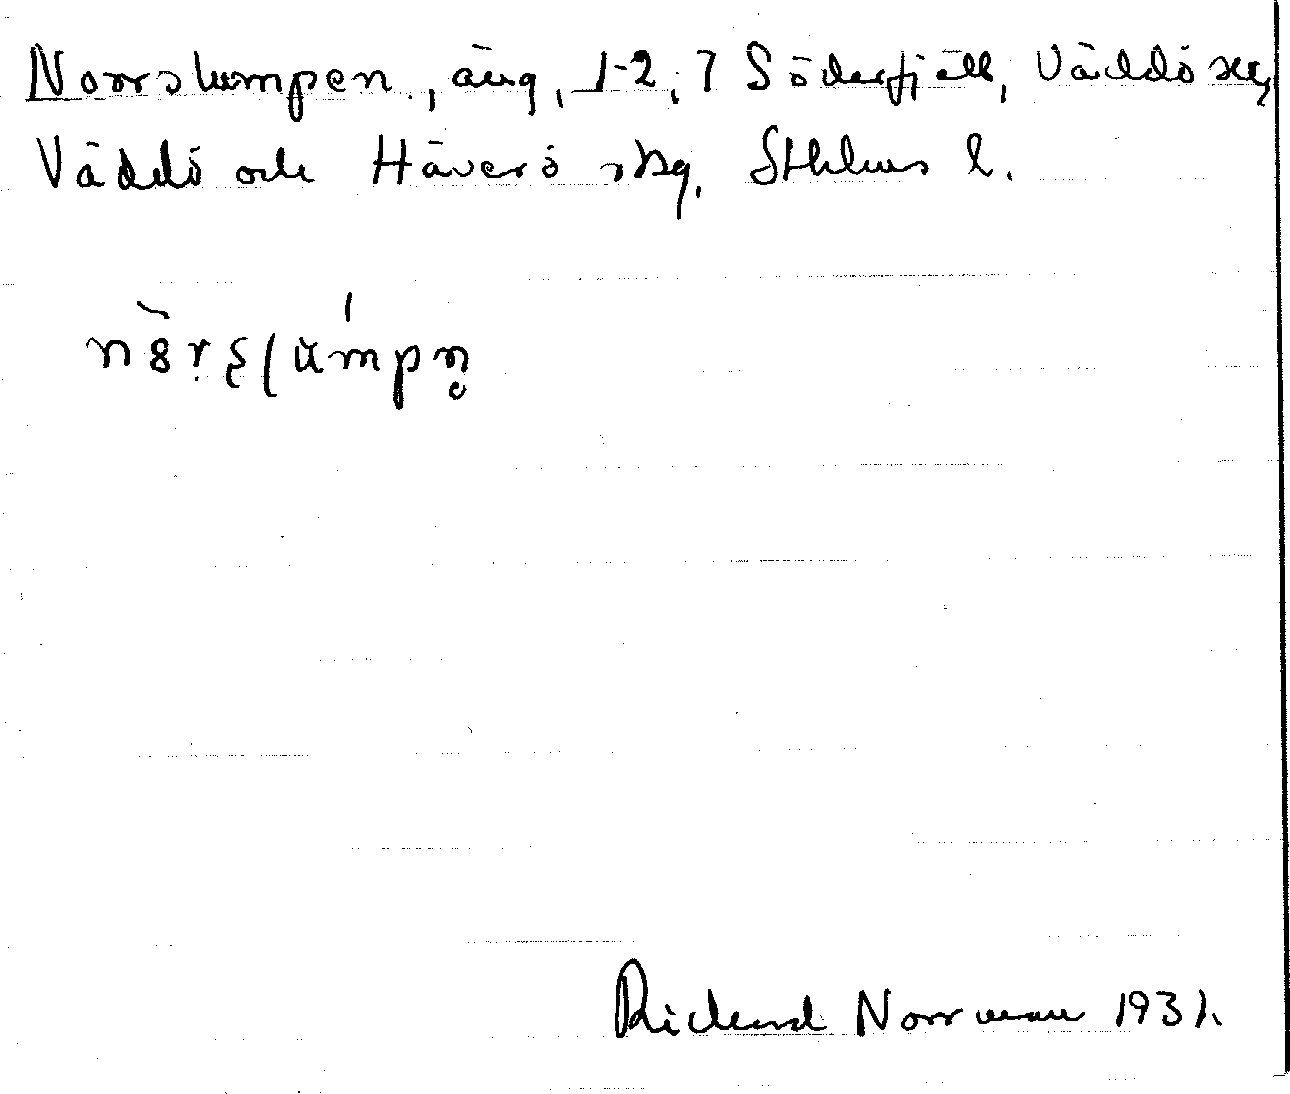 Norrslumpen, äng, 1-2, 7 Söderfjäll, Väddö sn,
Väddö och Häverö skg, Sthlms l.
Rickard Norrman 1931.